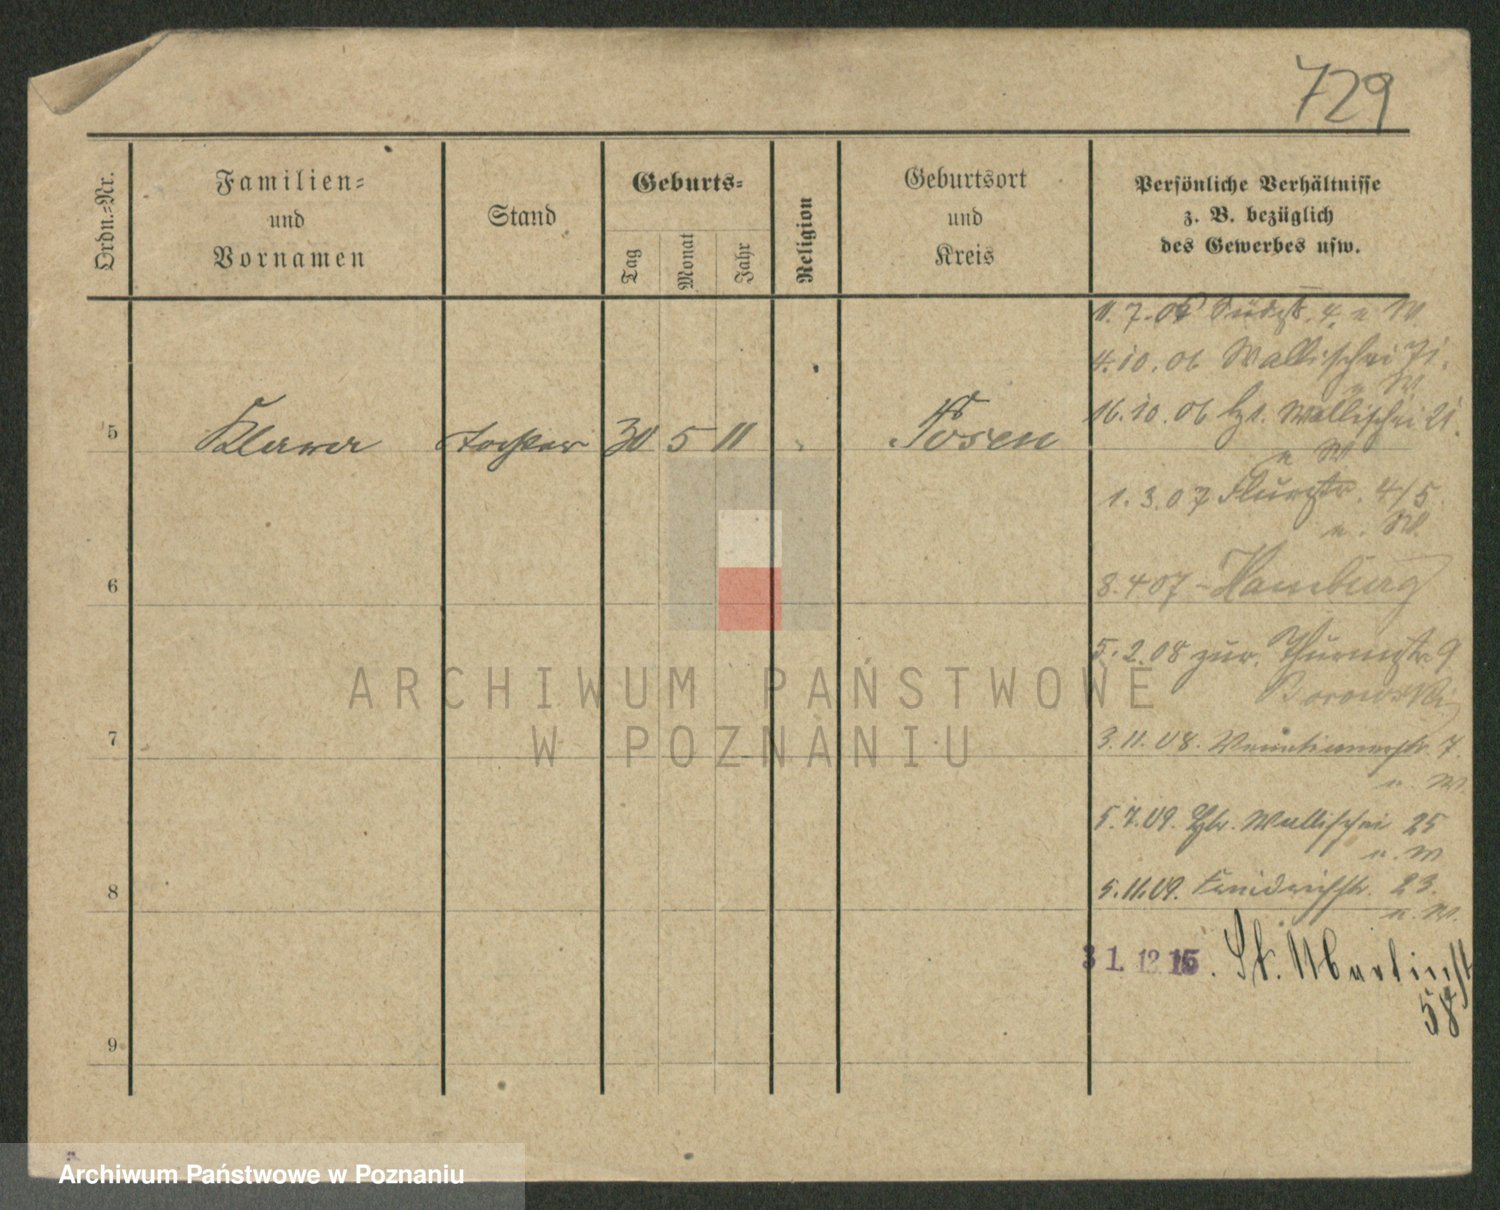 729
Ordn.-Nr.
Familien-
und
Vornamen
Stand
Geburts-
Tag
Monat
Jahr
Religion
Geburtsort
und
Kreis
Persönliche Verhältnisse
z. B. bezüglich
des Gewerbes usw.
11. 7. 4. u W.
4. 10. 06 Wallischei 71.
u W
5 30 5 11 Posen
16. 10. 06 Wallischei 21.
u W
1. 3. 07 Flurstr. 4/5
u. W.
6
8. 4 07 - Hamburg
5. 2. 08 zur. Thurmstr. 9
Borowski
ARCHIWUM PAŃSTWOWE
W POZNANIU
7
3. 11. 08. 7.
u. W.
5. 7. 09. Wallischei 25
u. W
8
5. 11. 09. 23.
u. W.
31. 12. 15. St. Martinst
58
9
Archiwum Państwowe w Poznaniu